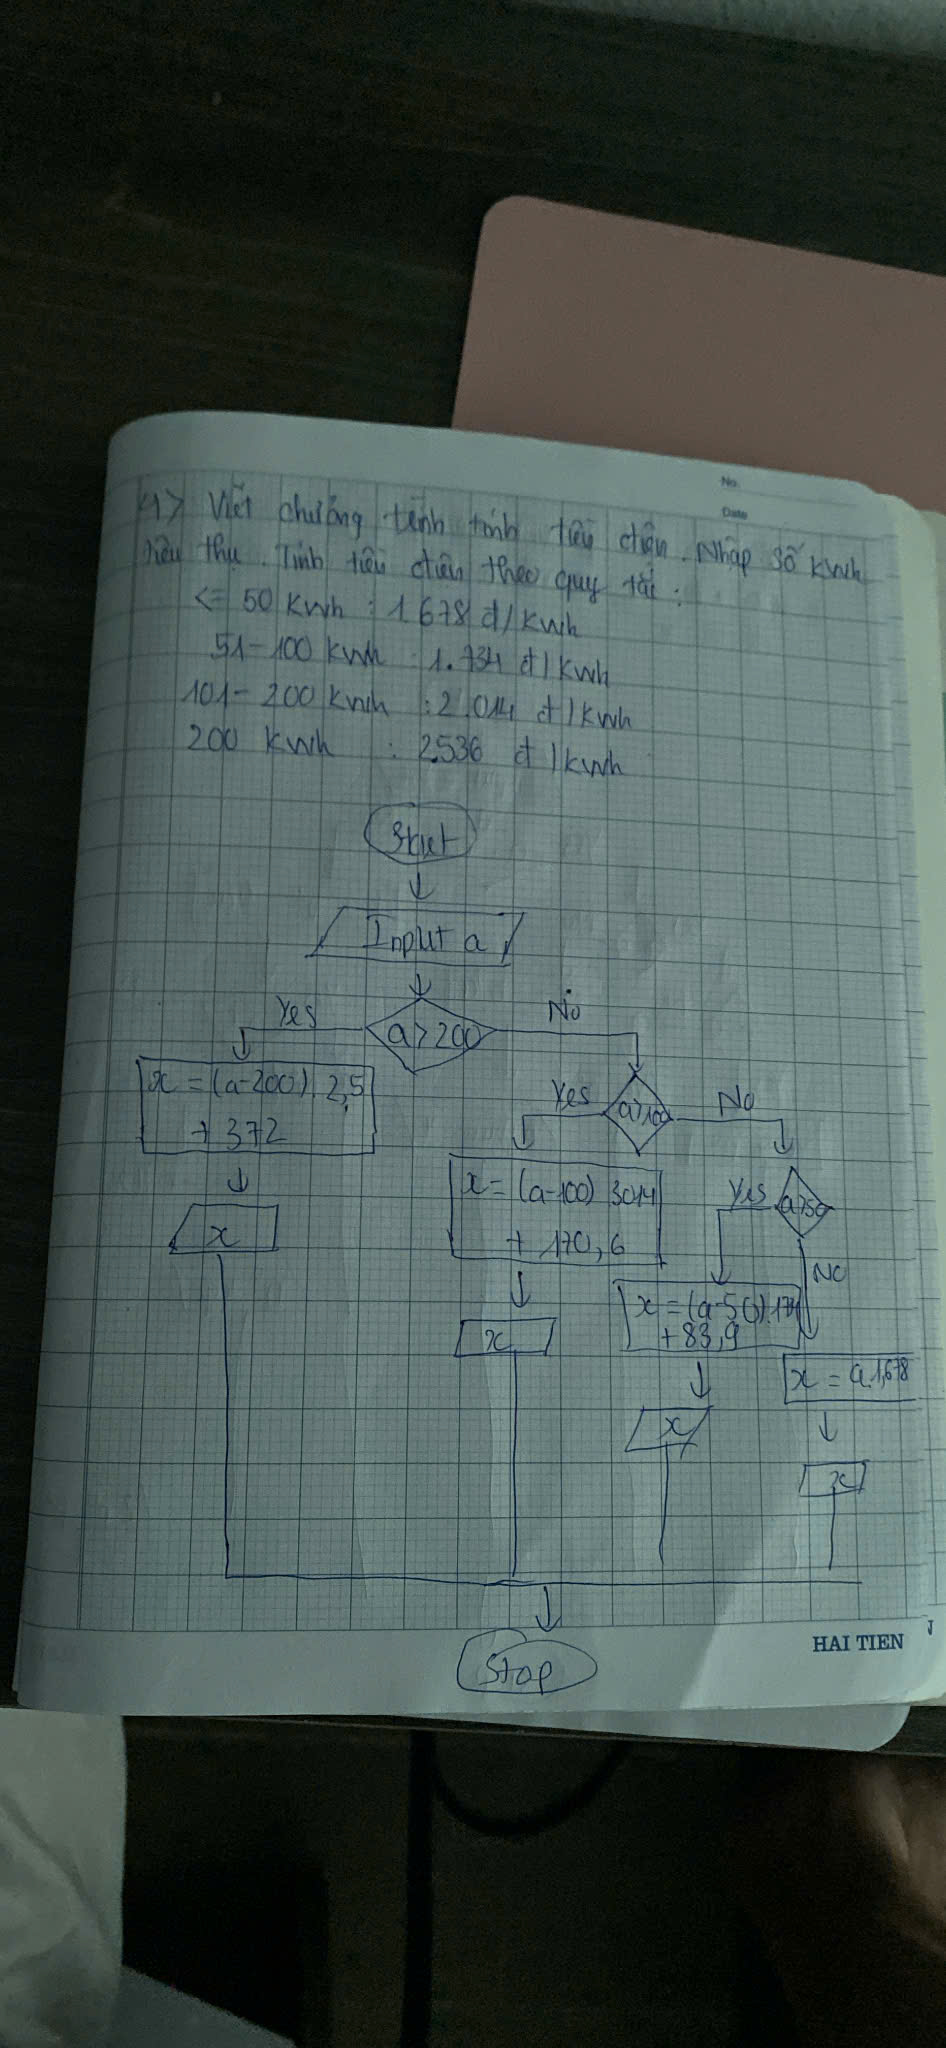 No.
Date
1> Viết chương trình tính tiền điện. Nhập số kwh
tiêu thụ. Tính tiền điện theo quy tắc:
<= 50 kwh : 1.678 đ/kwh
51-100 kwh : 1.734 đ/kwh
101-200 kwh : 2.014 đ/kwh
200 kwh : 2.536 đ/kwh
Start
Input a
Yes
No
a>200
x = (a-200).2,5
+ 372
Yes
a>100
No
x
x = (a-100)
+ 170,6
Yes
a>50
No
x
x = (a-50).
+ 83,9
x = a.1,678
x
x
HAI TIEN
Stop